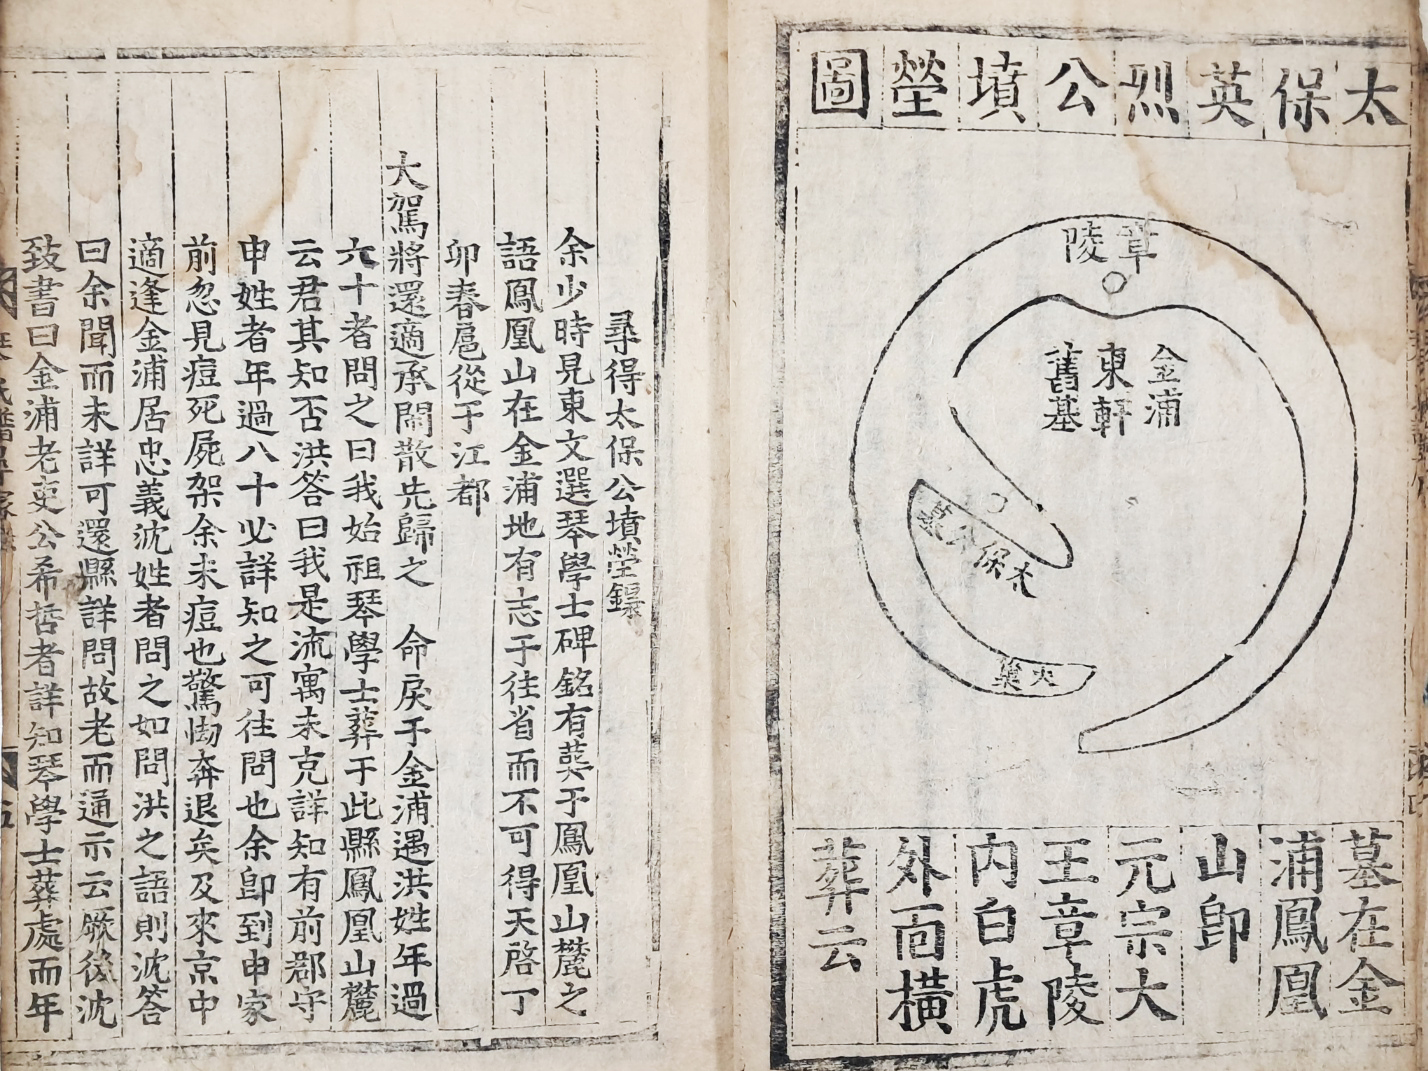 太保英烈公墳塋圖
章陵
金浦
東軒
舊基
太保公墓
火巢
墓在金
浦鳳凰
山卽
元宗大
王章陵
內白虎
外面橫
葬云
尋得太保公墳塋錄
余少時見東文選琴學士碑銘有葬于鳳凰山麓之
語鳳凰山在金浦地有志于往省而不可得天啓丁
卯春扈從于江都
大駕將還適承鬧散先歸之 命戾于金浦遇洪姓年過
六十者問之曰我始祖琴學士葬于此縣鳳凰山麓
云君其知否洪答曰我是流寓未克詳知有前郡守
申姓者年過八十必詳知之可往問也余卽到申家
前忽見痘死屍架余未痘也驚惻奔退矣及來京中
適逢金浦居忠義沈姓者問之如問洪之語則沈答
曰余聞而未詳可還縣詳問故老而通示云厥後沈
致書曰金浦老吏公希哲者詳知琴學士葬處而年